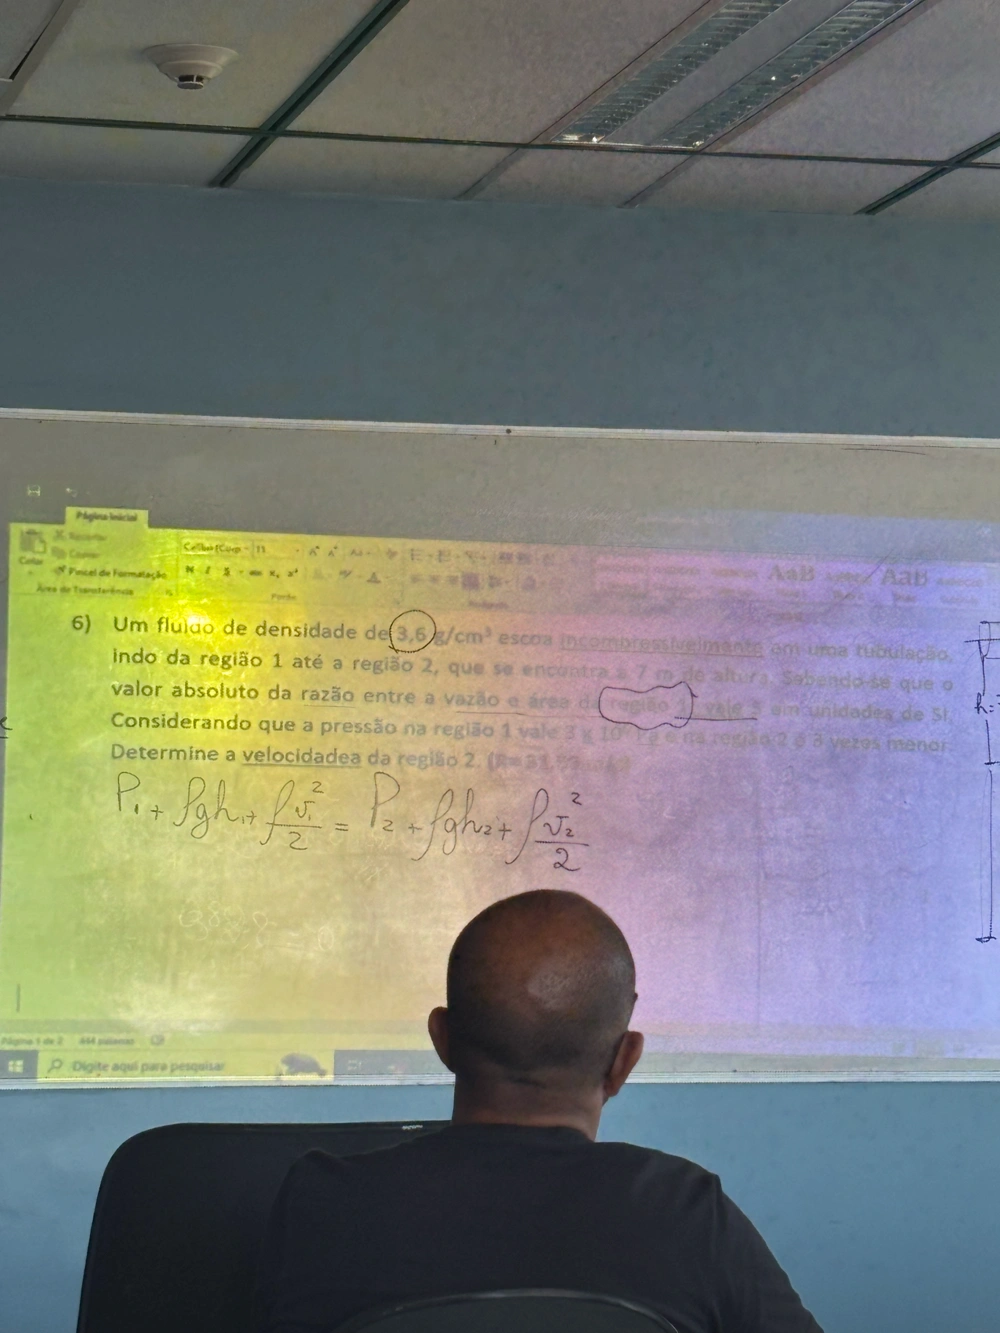 Página Inicial
Recortar
Copiar
Colar
Pincel de Formatação
Área de Transferência
Calibri (Corp
11
N I S
Fonte
AaB
AaB
6) Um fluido de densidade de 3,6 g/cm³ escoa incompressivelmente em uma tubulação,
indo da região 1 até a região 2, que se encontra a 7 m de altura. Sabendo-se que o
valor absoluto da razão entre a vazão e área da região 1 vale 3 em unidades de SI.
Considerando que a pressão na região 1 vale 3 x 10⁵ Pa e na região 2 é 3 vezes menor.
Determine a velocidadea da região 2.
P₁ + ρgh₁ + ρv₁²/2 = P₂ + ρgh₂ + ρv₂²/2
h=
Página 1 de 2
444 palavras
Digite aqui para pesquisar